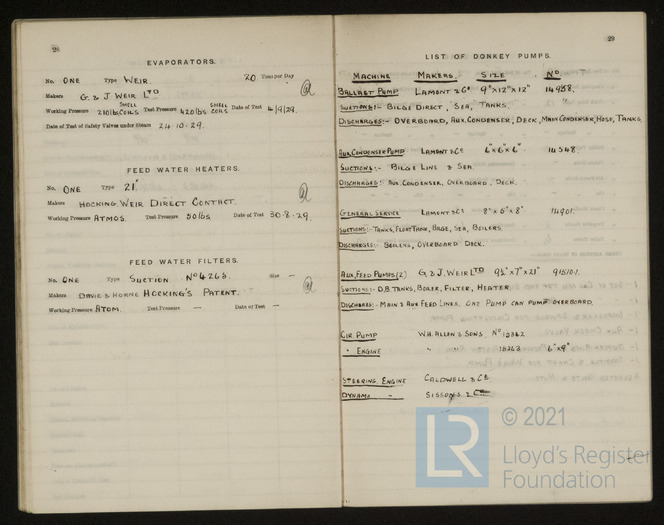 28
EVAPORATORS.
No. ONE Type WEIR. 20 Tons per Day
Makers G. & J. WEIR LTD
Working Pressure SHELL COILS Test Pressure 420 lbs SHELL COILS Date of Test 4/9/29.
Date of Test of Safety Valves under Steam 24.10.29.
FEED WATER HEATERS.
No. ONE Type 21"
Makers HOCKING. WEIR DIRECT CONTACT.
Working Pressure ATMOS. Test Pressure 50 lbs Date of Test 30.8.29.
FEED WATER FILTERS.
No. ONE Type SUCTION No 4263. Size —
Makers DAVIE & HORNE HOCKING'S PATENT.
Working Pressure ATOM. Test Pressure — Date of Test —
29
LIST OF DONKEY PUMPS.
MACHINE MAKERS. SIZE No
BALLAST PUMP LAMONT & Co 9"x12"x12" 14958.
SUCTIONS:- BILGE DIRECT, SEA, TANKS.
DISCHARGES:- OVERBOARD, AUX. CONDENSER, DECK, MAIN CONDENSER, HOSE, TANKS.
AUX. CONDENSER PUMP LAMONT & Co 6"x6"x6" 14548
SUCTIONS:- BILGE LINE & SEA.
DISCHARGES:- AUX. CONDENSER, OVERBOARD, DECK.
GENERAL SERVICE LAMONT & Co 8"x6"x8" 14901.
SUCTIONS:- TANKS, FLOAT TANK, BILGE, SEA, BOILERS.
DISCHARGES:- BOILERS, OVERBOARD DECK.
AUX. FEED PUMPS (2) G. & J. WEIR LTD 9½"x7"x21"
SUCTIONS:- D.B TANKS, BOILER, FILTER, HEATER.
DISCHARGE:- MAIN & AUX FEED LINES. ONE PUMP CAN PUMP OVERBOARD
CIR. PUMP W.H. ALLEN & SONS No
" ENGINE " " " 6"x9"
STEERING ENGINE CALDWELL & Co
DYNAMO - SISSONS & Co
LR © 2021
Lloyd's Register
Foundation